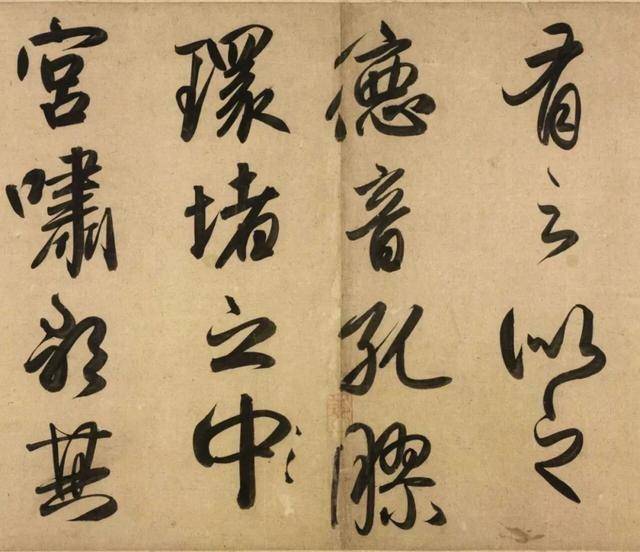 有之似之
德音孔膠
環堵之中
宮嘯歌無